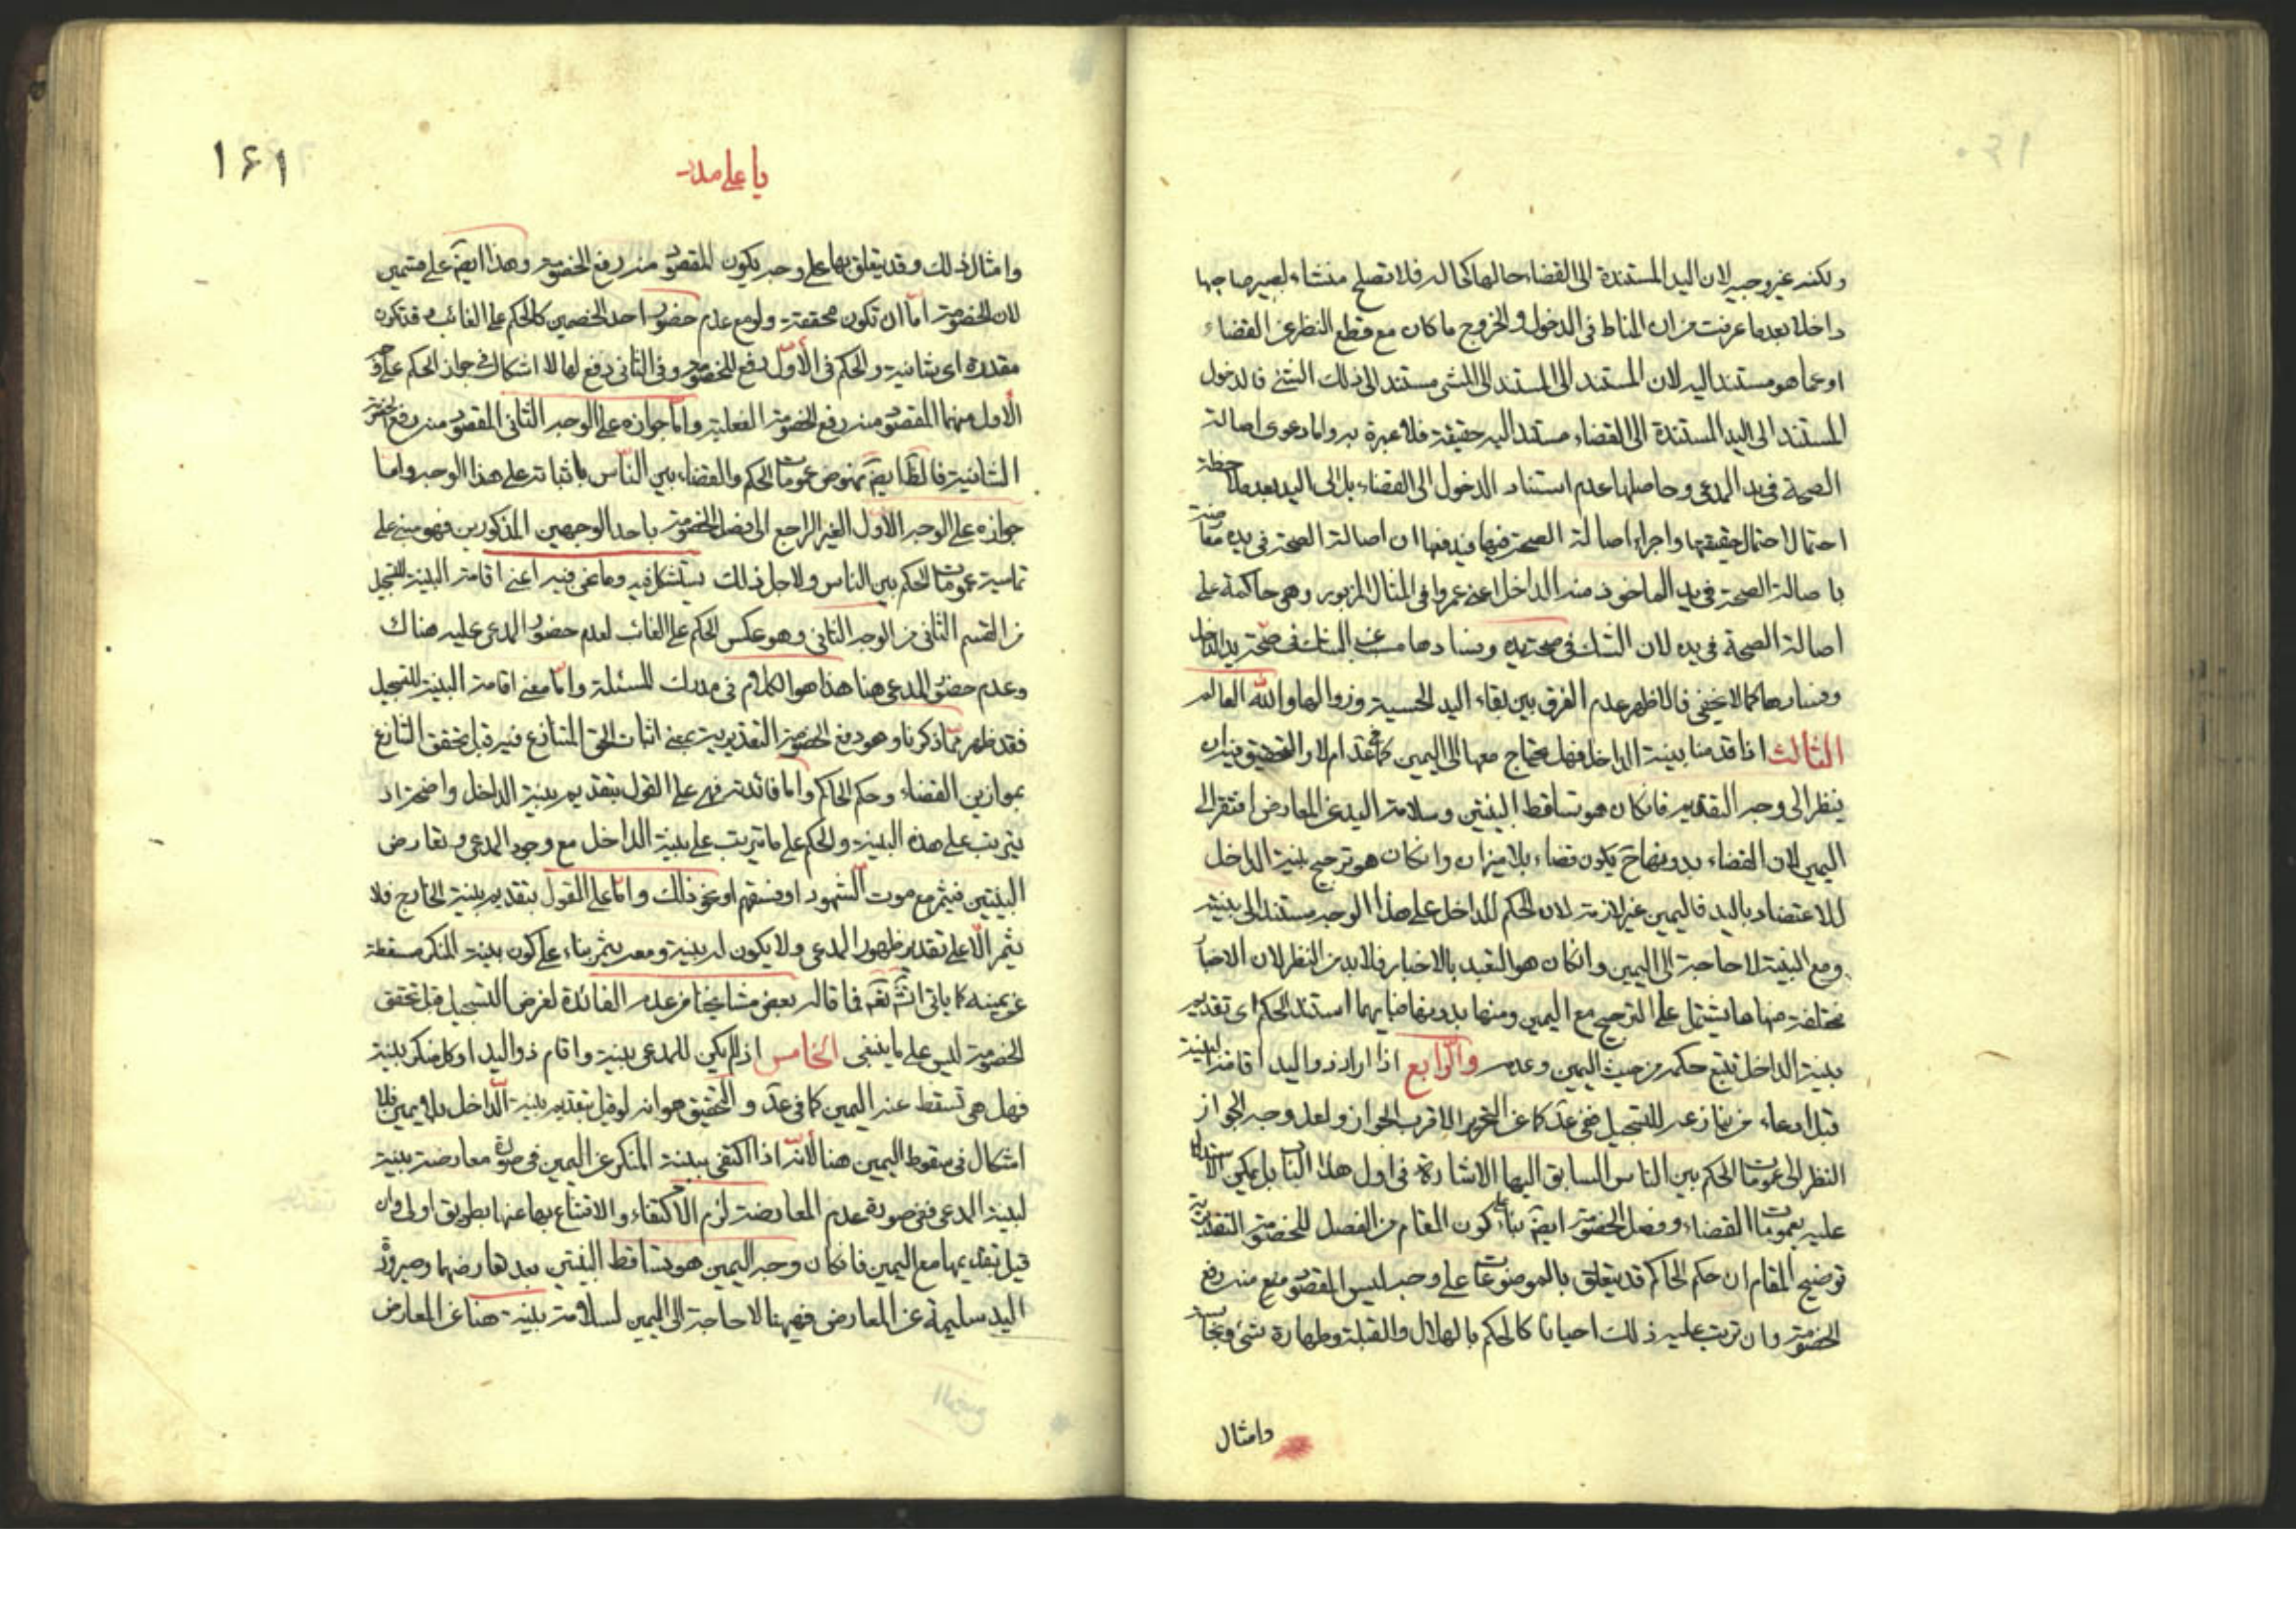 ولكنه غير وجيه لان اليد المستندة الى القضاء حالها كحاله فلا تصلح منشاء لصيرصاحبها
داخلا بعد ما عرفت من ان المناط فى الدخول والخروج ما كان مع قطع النظر عن القضاء
او عما هو مستند اليه لان المستند الى المستند الى الشى مستند الى ذلك الشئ فالدخول
المستند الى اليد المستندة الى القضاء مستند اليه حقيقة فلا عبرة به واما دعوى اصالة
الصحة فى يد المدعى وحاصلها عدم استناد الدخول الى القضاء بل الى اليد بعد ملاحظة
احتمال حقيقتها واجراء اصالة الصحة فيها فيدفعها ان اصالة الصحة فى يده معارضة
باصالة الصحة فى يد الماخوذ منه الداخل اعنى عمروا فى المثال المزبور وهى حاكمة على
اصالة الصحة فى يده لان الشك فى صحة يده وفسادها مسبب عن الشك فى صحة يد الداخل
وفسادها كما لا يخفى فالاظهر عدم الفرق بين بقاء اليد الحسية وزوالها والله العالم
الثالث اذا قدمنا بينة الداخل فهل يحتاج معها الى اليمين كما فى عد ام لا والتحقيق فيه ان
ينظر الى وجه التقديم فانكان هو تساقط البينتين وسلامة اليد عن المعارض افتقر الى
اليمين لان القضاء بدونهاح يكون قضاء بلا ميزان وانكان هو ترجيح بينة الداخل
للاعتضاد باليد فاليمين غير لازمة لان الحكم للداخل على هذا الوجه مستند الى بينته
ومع البينة لا حاجة الى اليمين وانكان هو التعبد بالاخبار فلا بد من النظر لان الاخبار
مختلفة منها ما يشتمل على الترجيح مع اليمين ومنها بدونها فايهما استند الحكم اى تقديم
بينة الداخل تتبع حكمه من حيث اليمين وعدمه والرابع اذا اراد ذو اليد اقامة البينة
قبل ادعاء من ينازعه للتسجيل ففى عد كا عن التحرير الاقرب الجواز ولعل وجه الجواز
النظر الى عمومات الحكم بين الناس السابق اليها الاشارة فى اول هذا الباب بل يمكن الاستدلال
عليه بعمومات القضاء وفصل الخصومة ايضا بناء على كون المقام من الفصل للخصومة التقديرية
توضيح المقام ان حكم الحاكم قد يتعلق بالموضوعات على وجه ليس المقصود منه رفع
الخصومة وان ترتب عليه ذلك احيانا كالحكم بالهلال والقبلة وطهارة شئ ونجاسته
وامثال
١٤١
يا على مدد
وامثال ذلك وقد يتعلق بها على وجه يكون المقصود منه رفع الخصومة وهذا ايضا على قسمين
لان الخصومة اما ان تكون محققة ولو مع عدم حضور احد الخصمين كالحكم على الغائب وقد تكون
مقدرة اى شانية والحكم فى الاول رفع للخصومة وفى الثانى دفع لها لا اشكال فى جواز الحكم على وجه
الاول منهما المقصود منه رفع الخصومة الفعلية واما جوازه على الوجه الثانى المقصود منه دفع الخصومة
الشانية فالظ ايضا نهوض عمومات الحكم والقضاء بين الناس باثباته على هذا الوجه واما
جوازه على الوجه الاول الغير الراجع الى فصل الخصومة باحد الوجهين المذكورين فهو مبنى على
تماسية عمومات الحكم بين الناس ولاجل ذلك يستشكل فيه وما نحن فيه اعنى اقامة البينة للتسجيل
من القسم الثانى من الوجه الثانى وهو عكس الحكم على الغائب لعدم حضور المدعى عليه هناك
وعدم حضور المدعى هنا هذا هو الكلام فى مدرك المسئلة واما معنى اقامة البينة للتسجيل
فقد ظهر مما ذكرنا وهو دفع الخصومة التقديرية بمعنى اثبات الحق المتنازع فيه قبل تحقق التنازع
بموازين القضاء وحكم الحاكم واما فائدته فهى على القول بتقديم بينة الداخل واضحة اذ
يترتب على هذه البينة والحكم على ما تترتب على بينة الداخل مع وجود المدعى وتعارض
البينتين فيثمر مع موت الشهود او فسقهم او نحو ذلك واما على القول بتقديم بينة الخارج فلا
يثمر الا على تقدير ظهور المدعى ولا يكون له بينة ومعه يثمر بناء على كون بينة المنكر مسقطة
عن يمينه كا ياتى انش تعه فما قاله بعض مشايخنا من عدم الفائدة لغرض التسجيل قبل تحقق
الخصومة ليس على ما ينبغى الخامس اذ لم يكن للمدعى بينة واقام ذو اليد او كل منكر بينة
فهل هى تسقط عنه اليمين كا فى عد والتحقيق هو انه لو قيل بتقديم بينة الداخل بلا يمين فلا
اشكال فى سقوط اليمين هنا لانه اذا اكتفى ببينة المنكر عن اليمين فى صورة معارضة بينة
لبينة المدعى ففى صورة عدم المعارضة لزم الاكتفاء والاقتناع بها عنها بطريق اولى وان
قيل بتقديمها مع اليمين فانكان وجه اليمين هو تساقط البينتين بعد تعارضهما وصيرورة
اليد سليمة عن المعارض فيهنا لا حاجة الى اليمين لسلامة بينة هنا عن المعارض